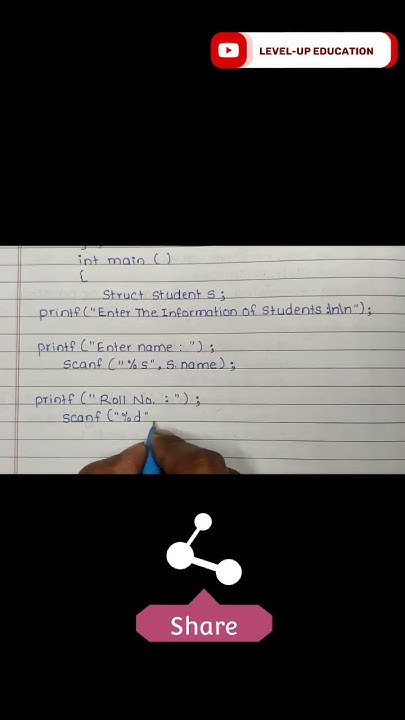 LEVEL-UP EDUCATION
int main ( )
{
Struct Student S ;
printf("Enter The Information of Students :\n\n");
printf ("Enter name : ") ;
scanf ("% s", S. name) ;
printf (" Roll No. : ") ;
scanf ("%d"
Share